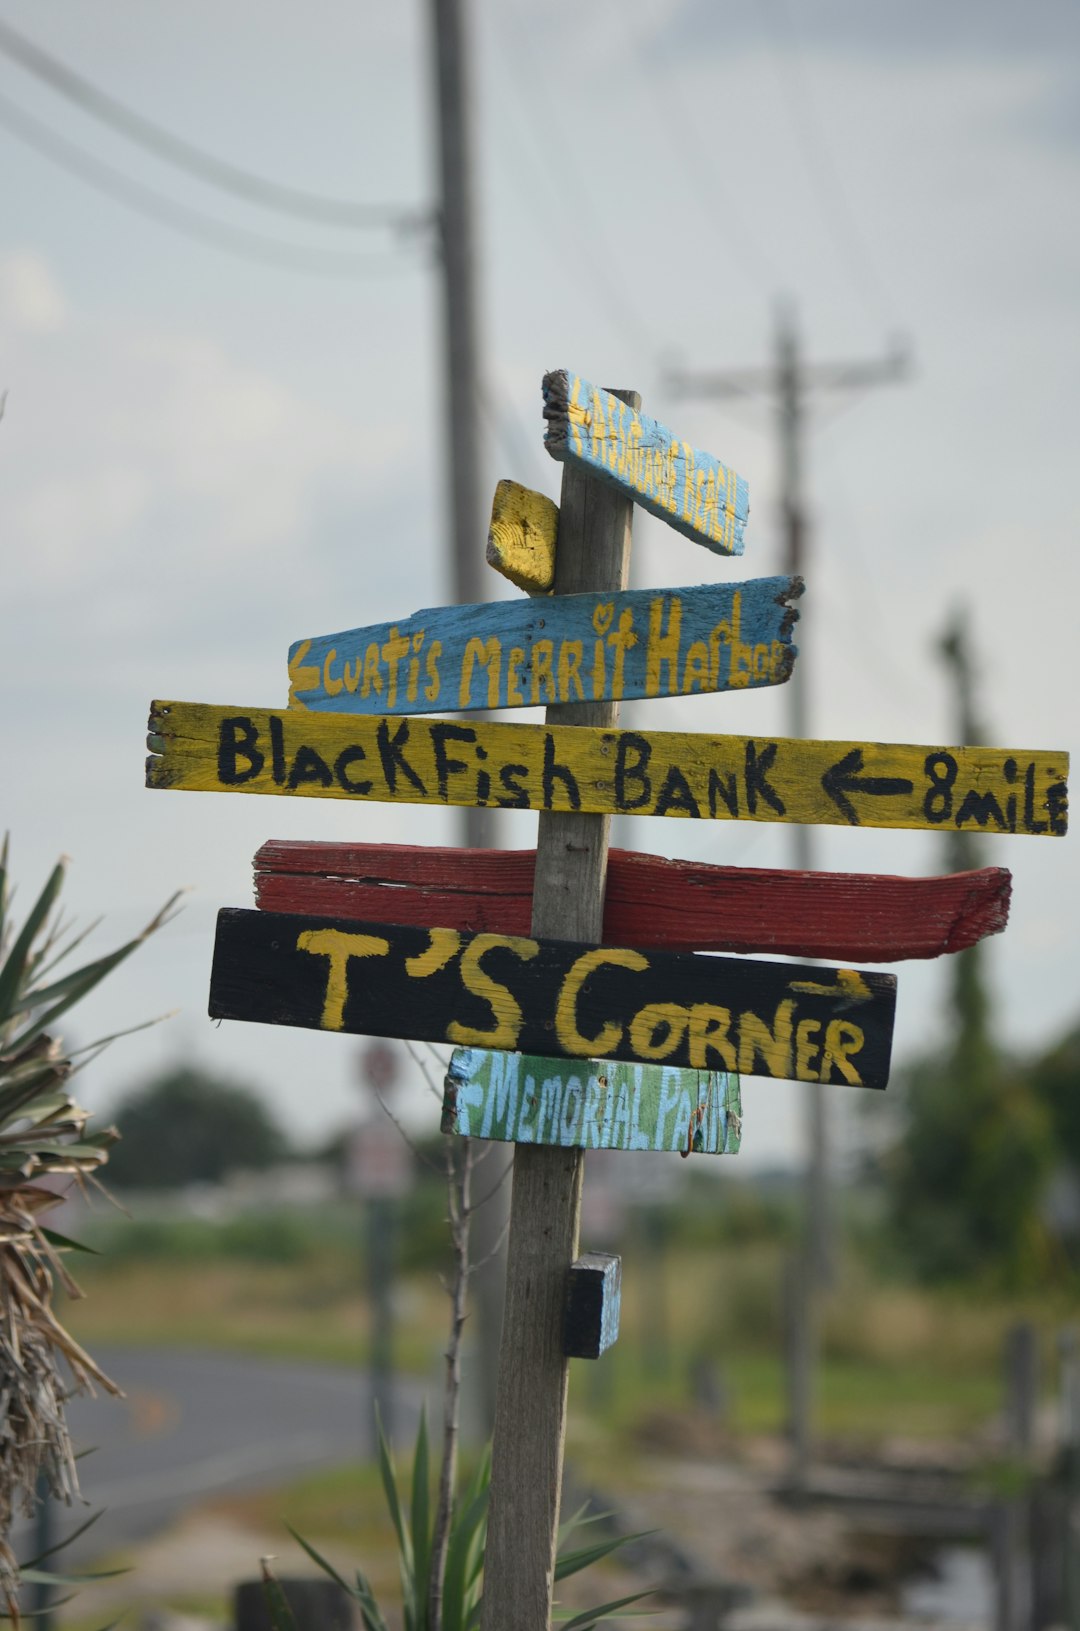 ← ASSATEAGUE BEACH
← CURtis MERRit Harbor
BlacKFish BANK ← 8 MiLE
T'S CORNER →
← MEMORIAl PARK